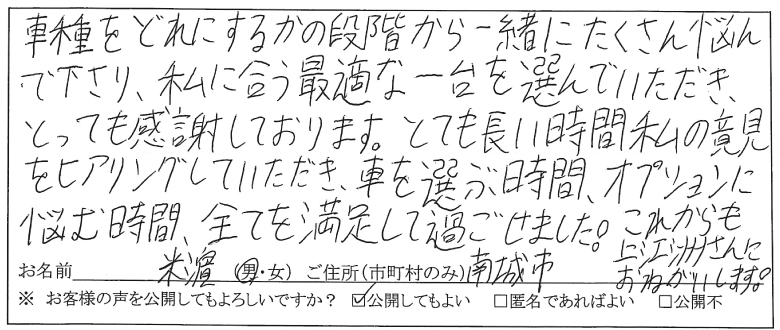 車種をどれにするかの段階から一緒にたくさん悩ん
で下さり、私に合う最適な一台を選んでいただき、
とっても感謝しております。とても長い時間私の意見
をヒアリングしていただき、車を選ぶ時間、オプションに
悩む時間、全てを満足して過ごせました。これからも
上江洲さんに
おねがいします。
お名前 米濵 (男・女) ご住所(市町村のみ) 南城市
※ お客様の声を公開してもよろしいですか? ☑公開してもよい □匿名であればよい □公開不